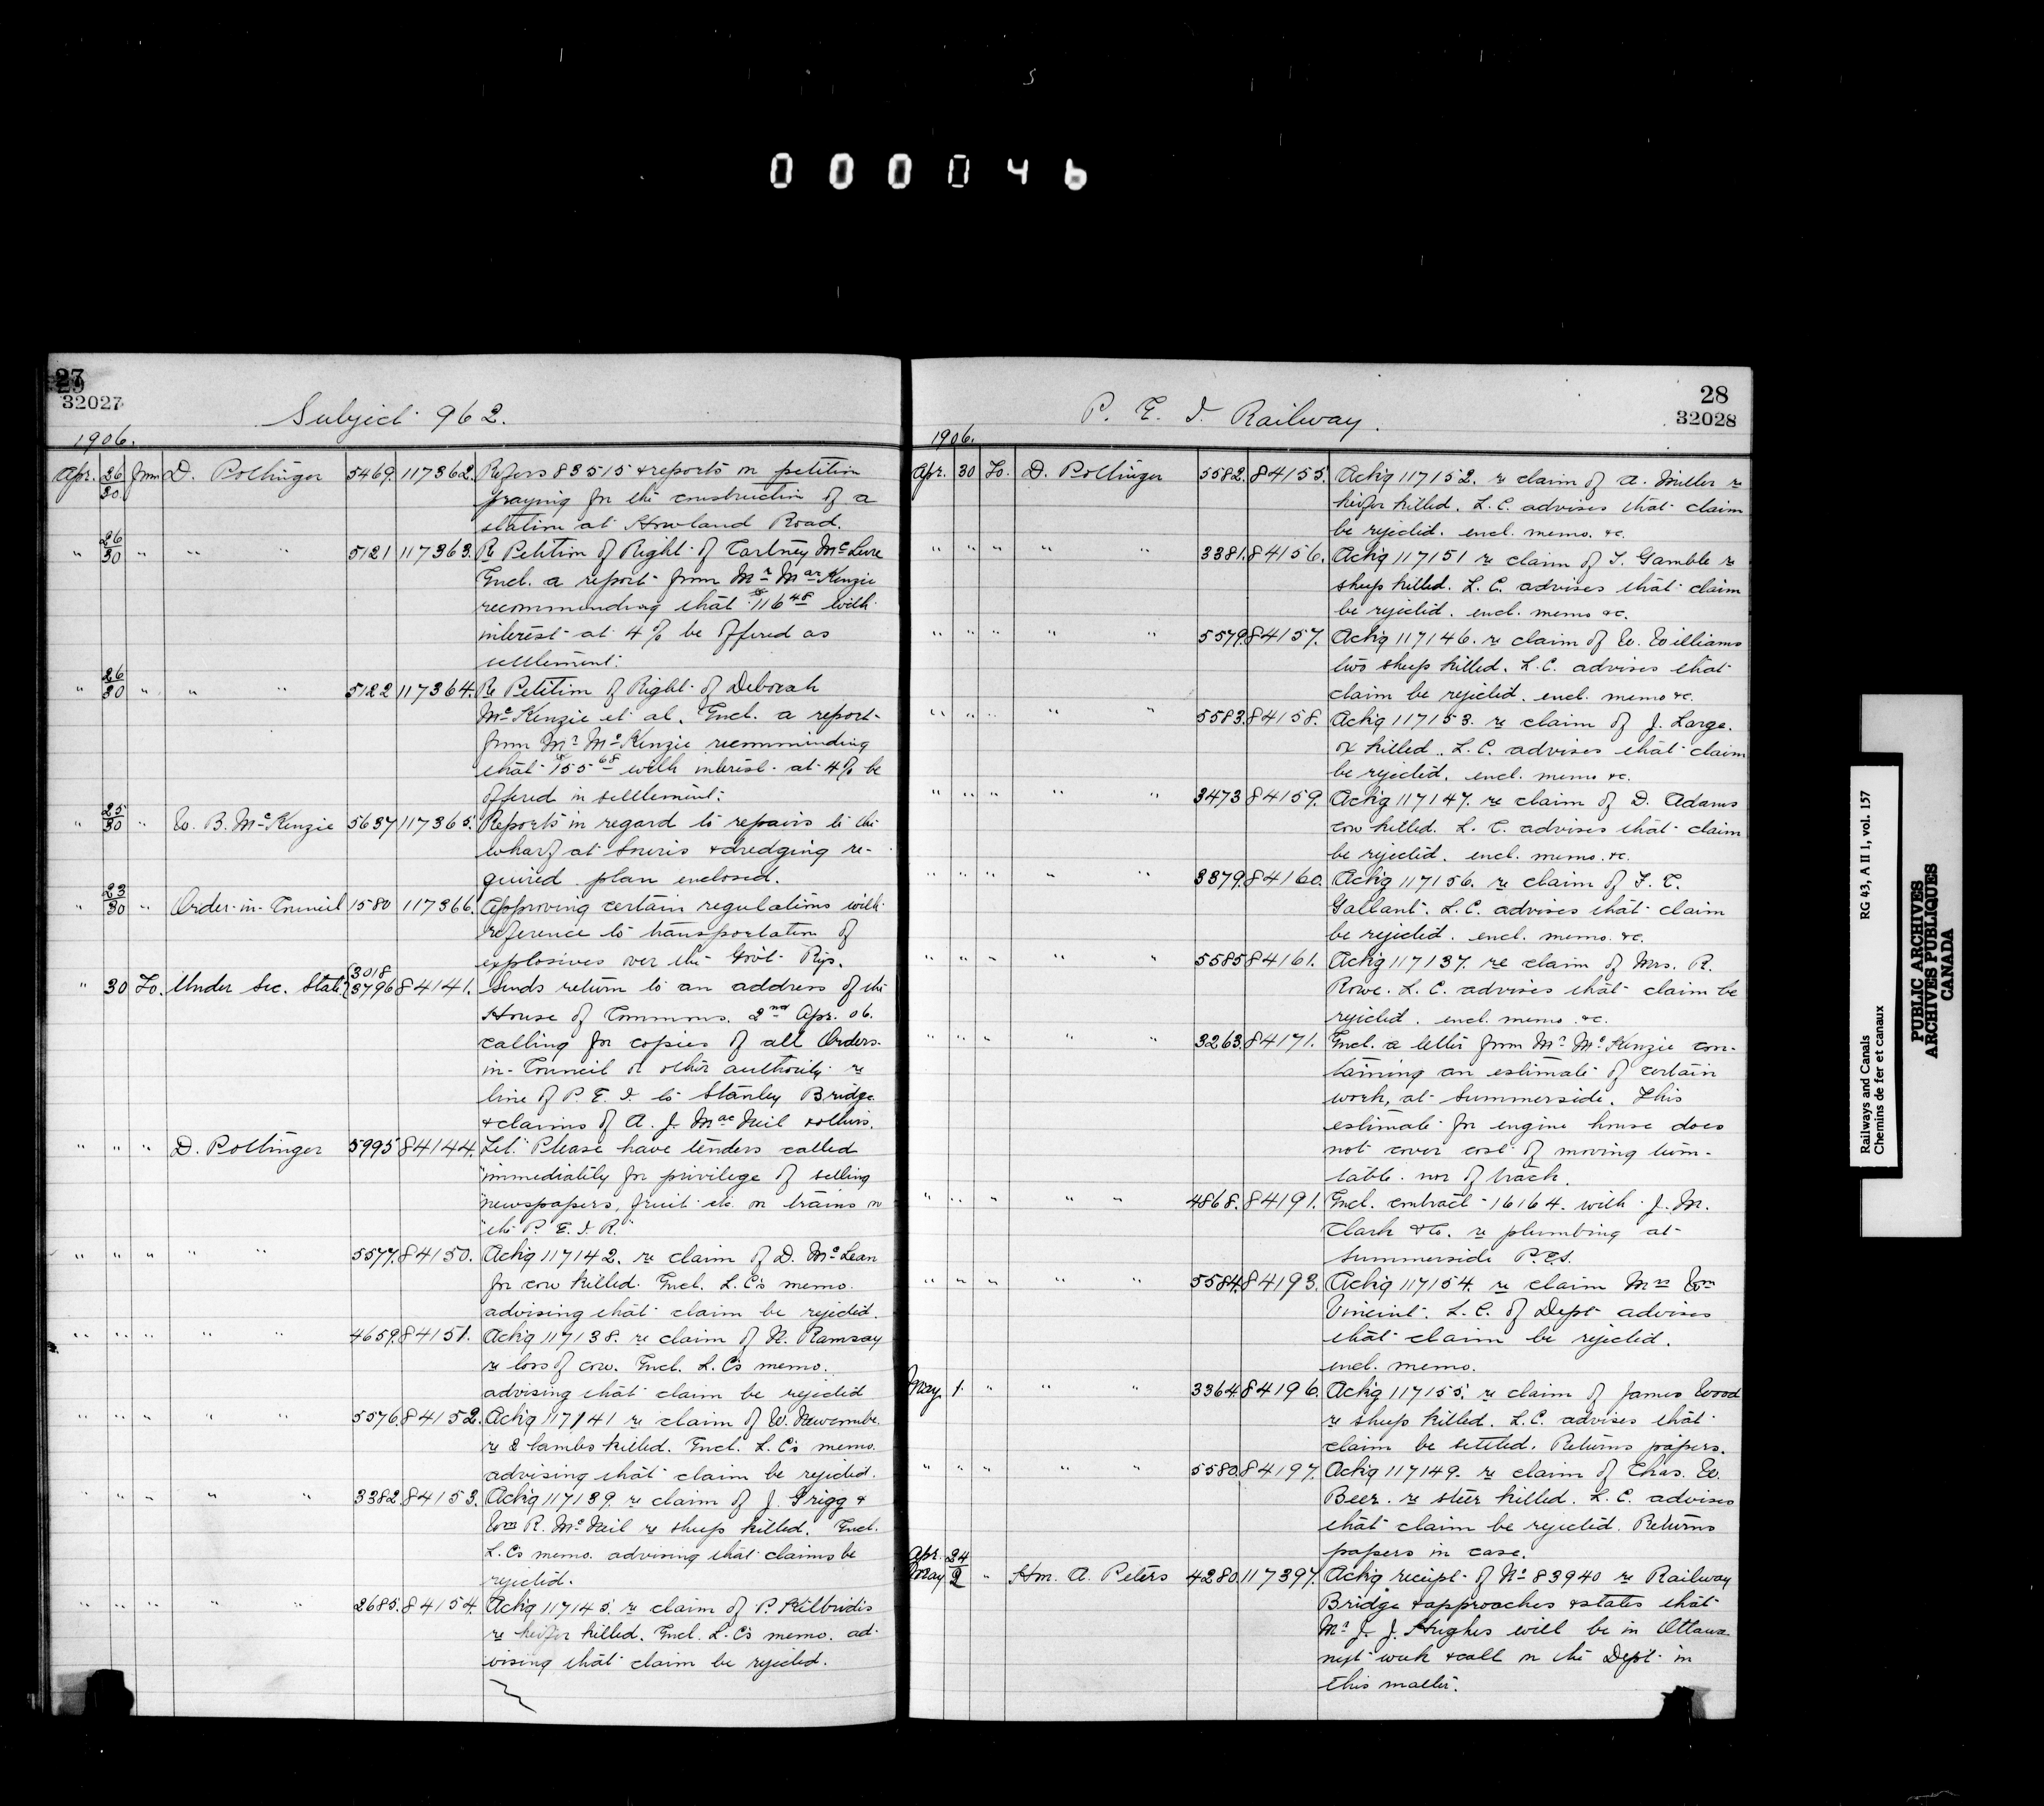 000046
27
32027
Subject 962.
1906.
Apr. 26/30 from D. Pottinger 5469. 117362. Refers 83515 & reports on petition
praying for the construction of a
station at Howland Road.
" 26/30 " " " 5121 117363. Re Petition of Right of Cartney McLure
Encl. a report from Mr MacKenzie
recommending that $116 48 with
interest at 4% be offered as
settlement.
" 26/30 " " " 5122 117364. Re Petition of Right of Deborah
McKenzie et al. Encl. a report
from Mr McKenzie recommending
that $155 68 with interest at 4% be
offered in settlement.
" 25/30 " W. B. McKenzie 5637 117365. Reports in regard to repairs to the
wharf at Souris & dredging re-
quired plan enclosed.
" 23/30 " Order-in-Council 1580 117366. Approving certain regulations with
reference to transportation of
explosives over the Govt Rys.
" 30 To. Under Sec. State {3018 3796 84141. Sends return to an address of the
House of Commons. 2nd Apr. 06.
calling for copies of all Orders-
in-Council or other authority re
line of P. E. I. to Stanley Bridge
& claims of A. J. MacNeil & others.
" " " D. Pottinger 5995 84144. Let. "Please have tenders called
"immediately for privilege of selling
"newspapers, fruit etc. on trains on
"the P. E. I. R."
" " " " " 5577. 84150. Ack'g 117142. re claim of D. McLean
for cow killed. Encl. L.C's memo.
advising that claim be rejected.
" " " " " 4659. 84151. Ack'g 117138. re claim of N. Ramsay
re loss of cow. Encl. L.C's memo.
advising that claim be rejected
" " " " " 5576. 84152. Ack'g 117141 re claim of W. Newcombe.
re 2 lambs killed. Encl. L.C's memo.
advising that claim be rejected.
" " " " " 3382. 84153. Ack'g 117139. re claim of J. Grigg &
Wm R. McNeil re sheep killed. Encl.
L.C's memo. advising that claims be
rejected.
" " " " " 2685. 84154. Ack'g 117145. re claim of P. Kilbridis
re heifer killed. Encl. L.C's memo. ad-
vising that claim be rejected.
28
32028
P. E. I. Railway.
1906.
Apr. 30 To. D. Pottinger 5582. 84155. Ack'g 117152. re claim of A. Miller re
heifer killed. L.C. advises that claim
be rejected. encl. memo. &c.
" " " " " 3381. 84156. Ack'g 117151 re claim of T. Gamble re
sheep killed. L.C. advises that claim
be rejected. encl. memo &c.
" " " " " 5579. 84157. Ack'g 117146. re claim of W. Williams
two sheep killed. L.C. advises that
claim be rejected. encl. memo &c.
" " " " " 5583. 84158. Ack'g 117153. re claim of J. Large.
ox killed. L.C. advises that claim
be rejected. encl. memo &c.
" " " " " 3473 84159. Ack'g 117147. re claim of D. Adams
cow killed. L.C. advises that claim
be rejected. encl. memo. &c.
" " " " " 3379. 84160. Ack'g 117156. re claim of F. C.
Gallant. L.C. advises that claim
be rejected. encl. memo. &c.
" " " " " 5585 84161. Ack'g 117137. re claim of Mrs. R.
Rowe. L.C. advises that claim be
rejected. encl. memo. &c.
" " " " " 3263. 84171. Encl. a letter from Mr McKenzie con-
taining an estimate of certain
work, at Summerside. This
estimate for engine house does
not cover cost of moving turn-
table nor of track.
" " " " " 4868. 84191. Encl. contract 16164. with J. M.
Clark & Co. re plumbing at
Summerside P.E.I.
" " " " " 5584. 84193. Ack'g 117154. re claim Mrs Wm
Vincent. L.C. of Dept advises
that claim be rejected.
encl. memo.
May 1. " " " 3364. 84196. Ack'g 117155. re claim of James Wood
re sheep killed. L.C. advises that
claim be settled. Returns papers.
" " " " " 5580. 84197. Ack'g 117149. re claim of Chas. W.
Beer. re steer killed. L.C. advises
that claim be rejected. Returns
papers in case.
Apr. 24/May 2 " Hon. A. Peters 4280. 117397. Ack'g receipt of No 83940 re Railway
Bridge & approaches & states that
Mr J. J. Hughes will be in Ottawa
next week & call on the Dept in
this matter.
Railways and Canals RG 43, A II 1, vol. 157
Chemins de fer et canaux
PUBLIC ARCHIVES
ARCHIVES PUBLIQUES
CANADA